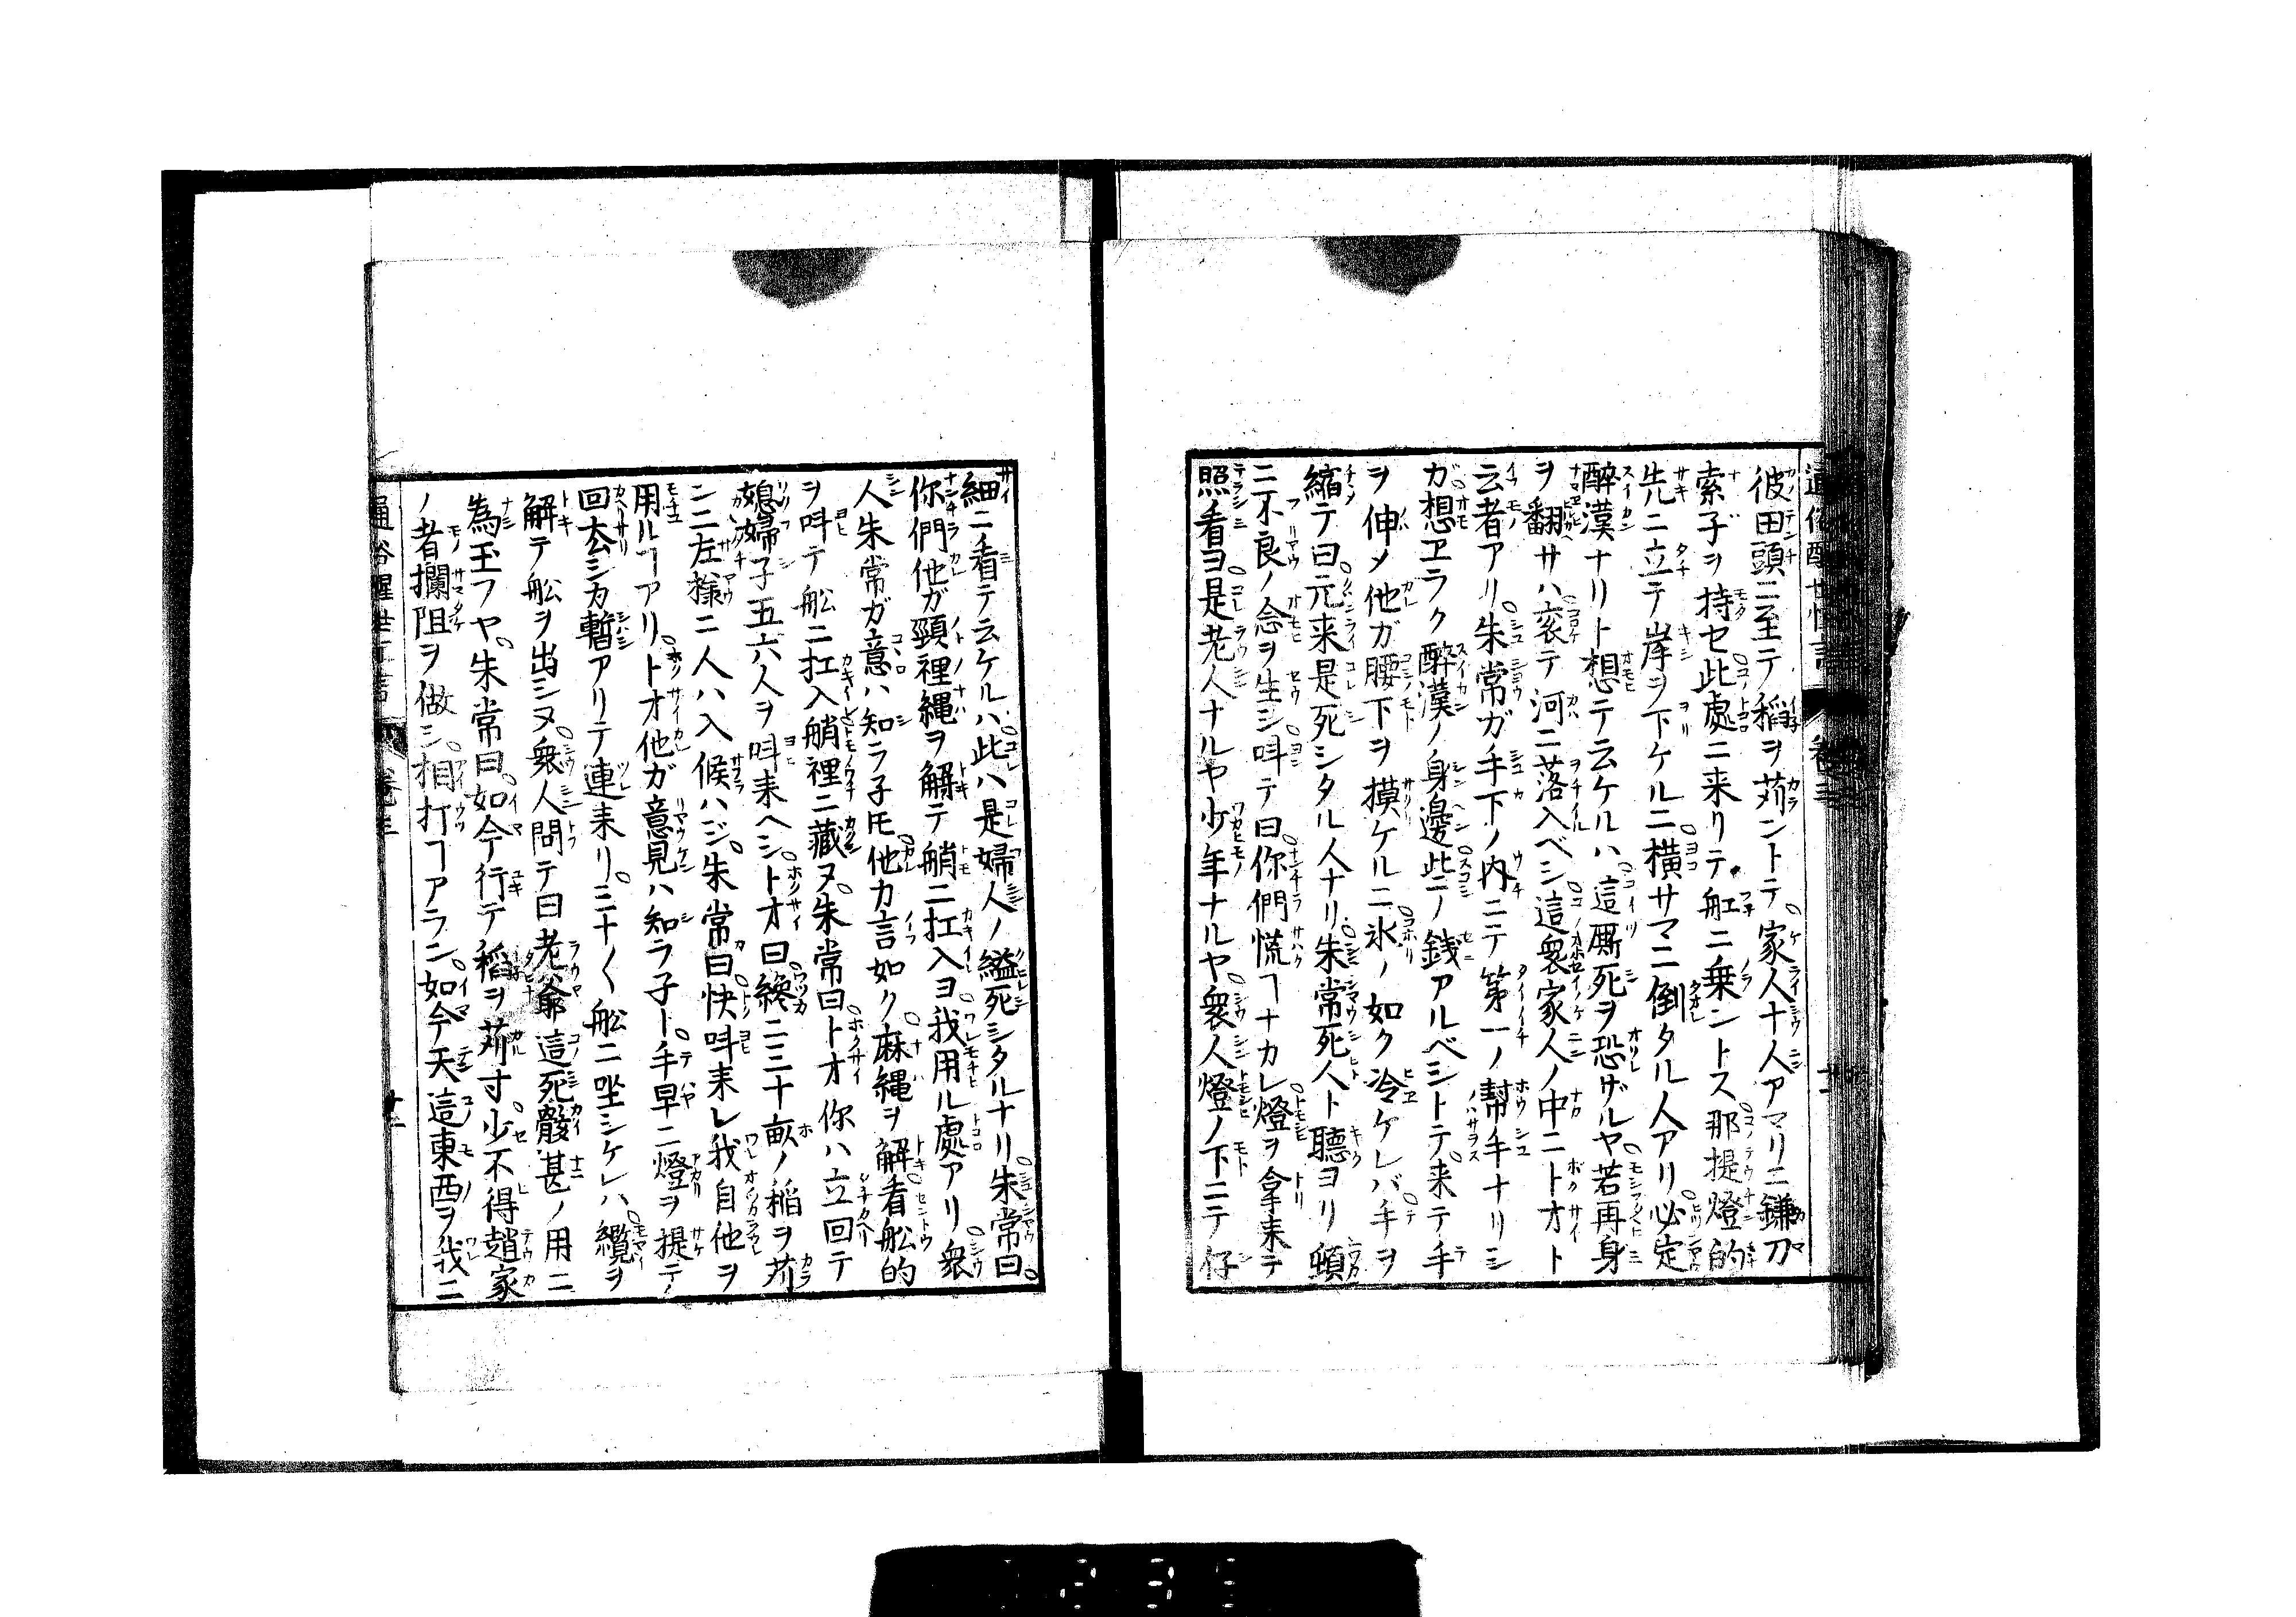 彼田頭ニ至テ稻ヲ苅ントテ家人十人アマリニ鎌刀
索子ヲ持セ此處ニ来リテ舡ニ乗ントス那提燈的
先ニ立テ岸ヲ下ケルニ横サマニ倒タル人アリ必定
醉漢ナリト想テ云ケルハ這厮死ヲ恐ザルヤ若再身
ヲ翻サハ滾テ河ニ落入ベシ這衆家人ノ中ニトオト
云者アリ朱常ガ手下ノ内ニテ第一ノ幇手ナリシ
ガ想ヱラク醉漢ノ身邊些ニノ銭アルベシトテ来テ手
ヲ伸メ他ガ腰下ヲ摸ケルニ氷ノ如ク冷ケレバ手ヲ
縮テ曰元来是死シタル人ナリ朱常死人ト聽ヨリ頓
ニ不良ノ念ヲ生シ呌テ曰你們慌ヿナカレ燈ヲ拿来テ
照看ヨ是老人ナルヤ少年ナルヤ衆人燈ノ下ニテ仔
細ニ看テ云ケルハ此ハ是婦人ノ縊死シタルナリ朱常曰
你們他ガ頸裡縄ヲ解テ艄ニ扛入ヨ我用ル處アリ衆
人朱常ガ意ハ知ラ子𪜈他カ言如ク麻縄ヲ解看船的
ヲ呌テ船ニ扛入艄裡ニ藏ヌ朱常曰トオ你ハ立回テ
媳婦子五六人ヲ呌来ヘシトオ曰纔ニ二十畝ノ稲ヲ苅
ンニ左様ニ人ハ入候ハジ朱常曰快呌来レ我自他ヲ
用ルヿアリトオ他ガ意見ハ知ラ子ト手早ニ燈ヲ提テ
回去シカ暫アリテ連来リミナ〱船ニ坐シケレハ纜ヲ
解テ船ヲ出シヌ衆人問テ曰老爺這死骸甚ノ用ニ
為玉フヤ朱常曰如今行テ稻ヲ苅寸少不得趙家
ノ者攔阻ヲ做シ相打ヿアラン如今天這東西ヲ我ニ
通俗醒世恒言 卷三 十二